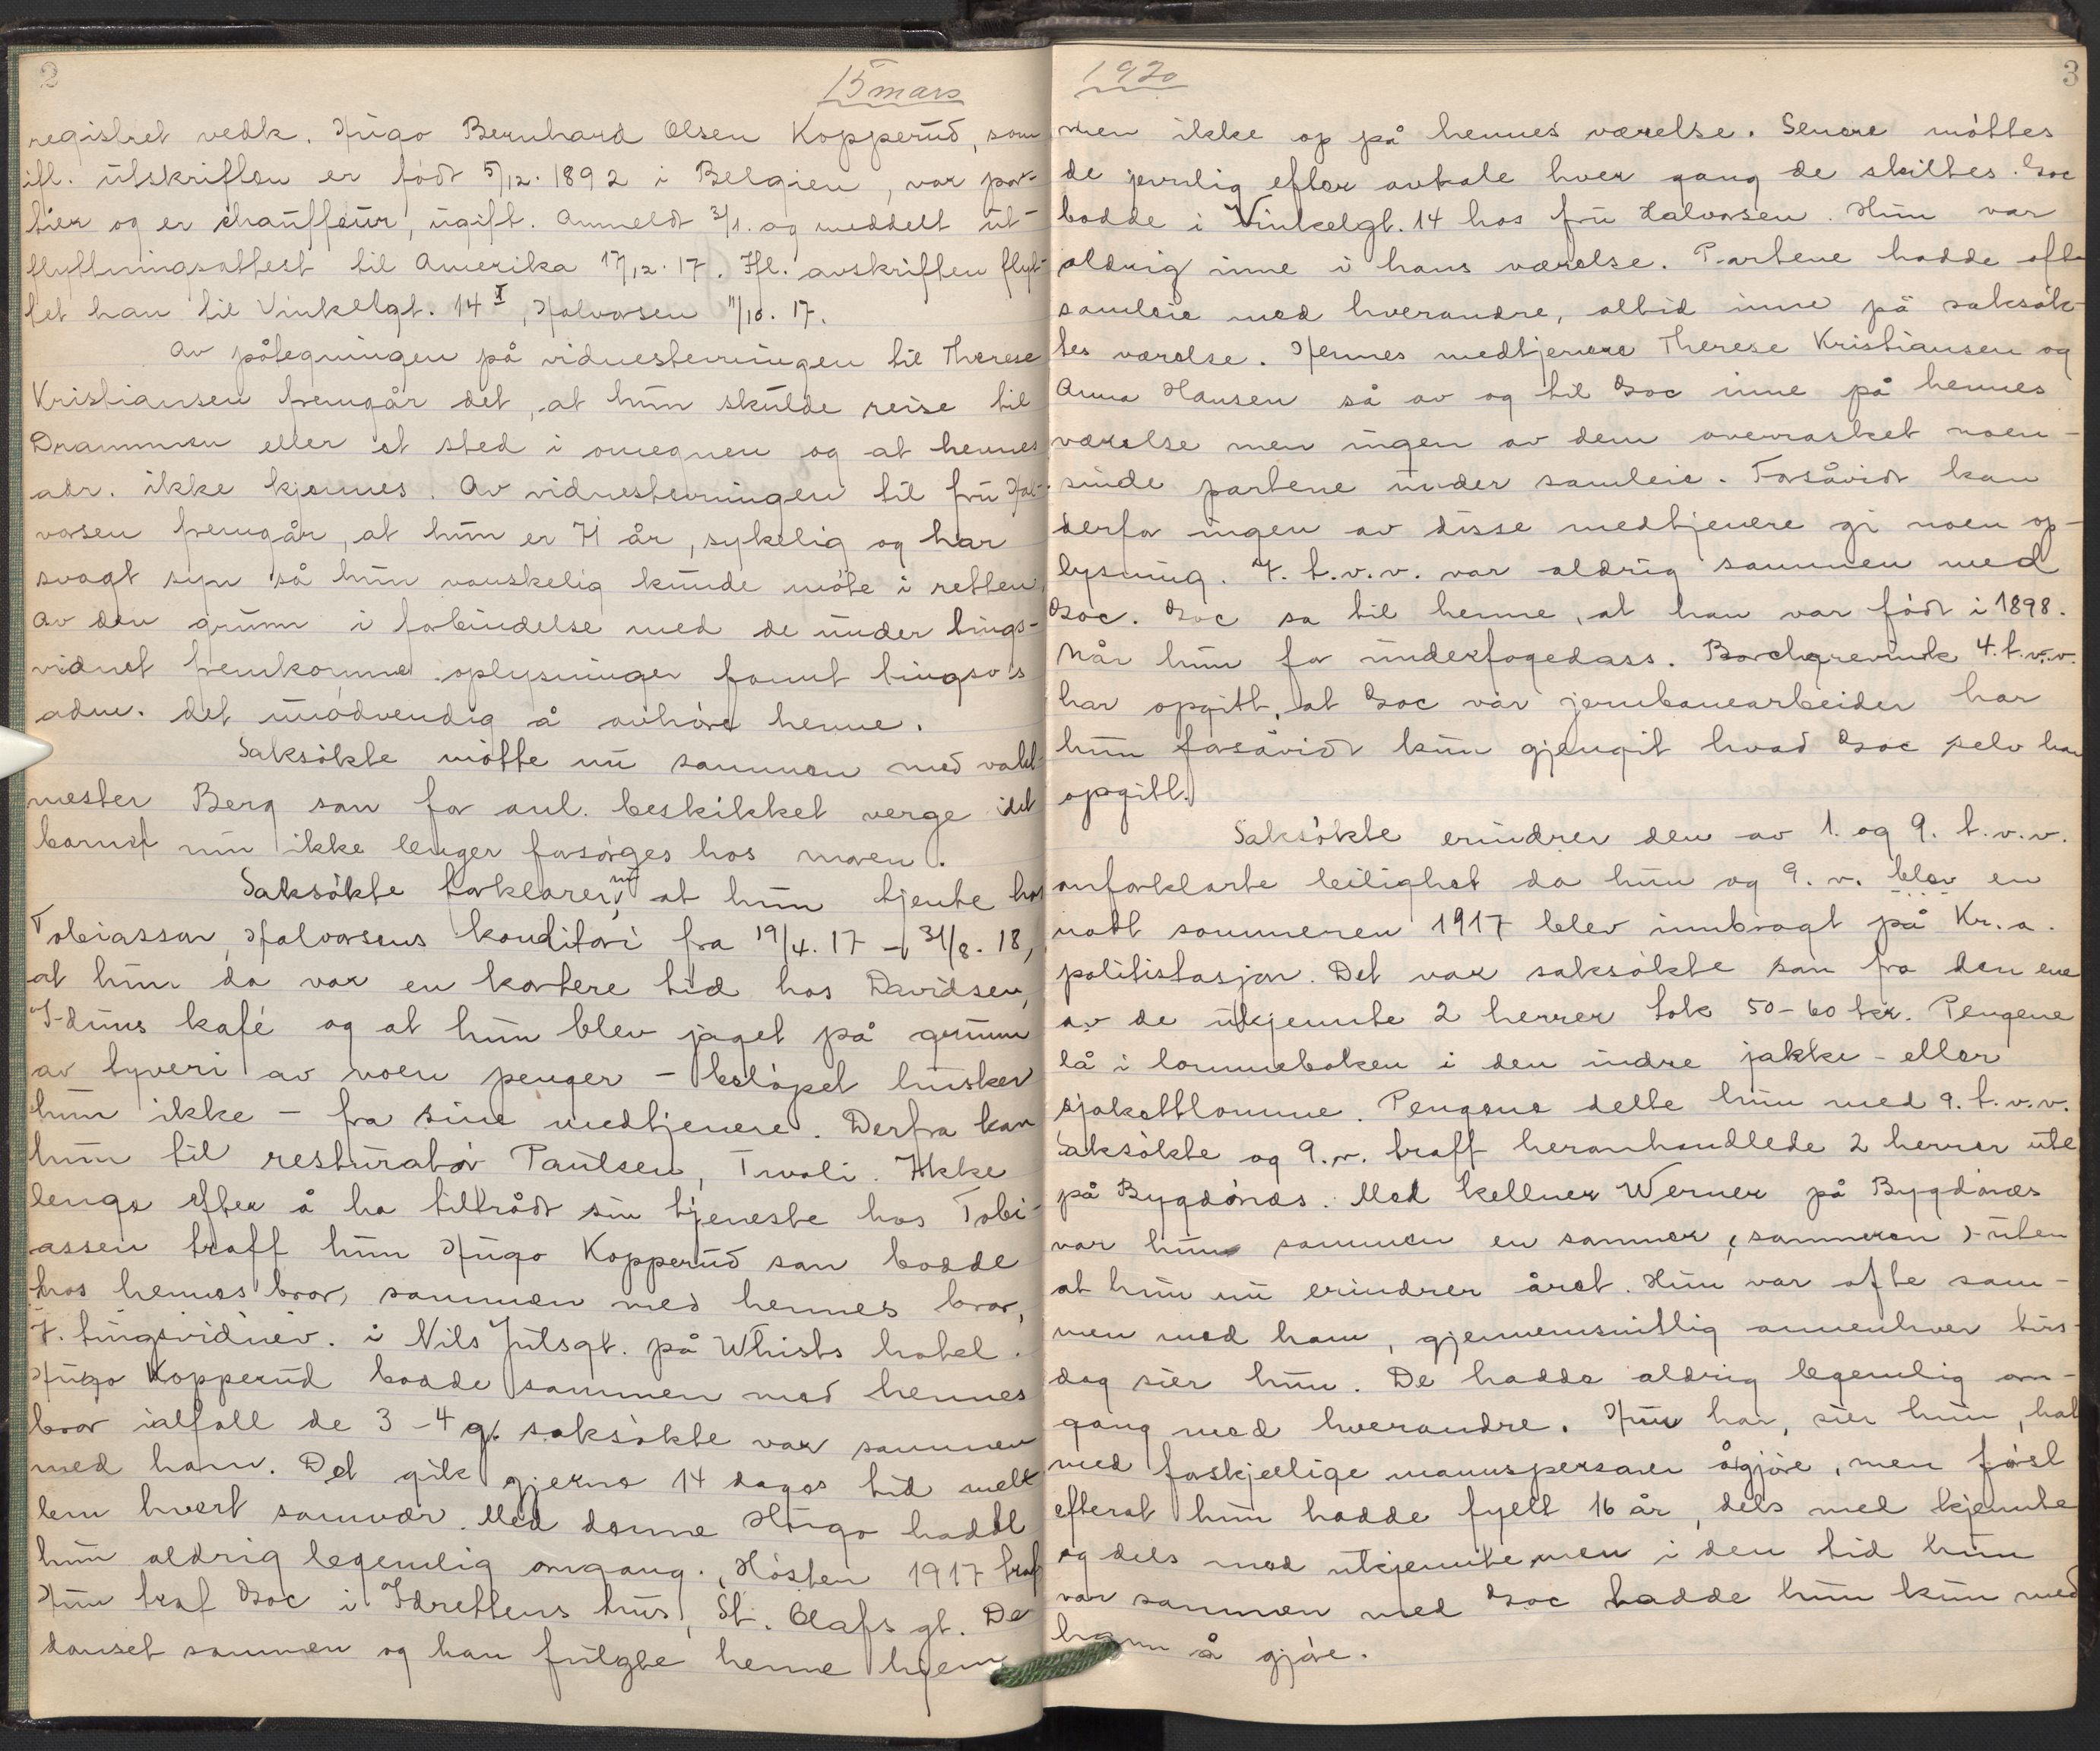 2
15 mars
registret vedk. Hugo Bernhard Olsen Kopperud, som
ifl. utskriften er född 5/12. 1892 i Belgien, var por-
tier og er chauffeur, ugift. Anmeldt 3/1. og meddelt ut-
flyttningsattest til Amerika 17/12. 17. Ifl. avskriften flyt-
tet han til Vinkelgt. 14 I, Halvorsen 11/10. 17.
Av påtegningen på vidnestevningen til Therese
Kristiansen fremgår det, at hun skulde reise til
Drammen eller et sted i omegnen og at hennes
adr. ikke kjennes. Av vidnestevningen til fru Hal-
vorsen fremgår, at hun er 71 år, sykelig og har
svagt syn så hun vanskelig kunde møte i retten.
Av den grunn i forbindelse med de under tings-
vidnet fremkomne oplysninger fannt tingsv's
adm. det unødvendig å avhøre henne.
Saksøkte møtte nu sammen med vakt-
mester Berg som for anl. beskikket verge idet
barnet nu ikke lenger forsørges hos moren.
Saksøkte forklarer nu, at hun tjente hos
Tobiassen, Halvorsens konditori fra 19/4. 17 - 31/8. 18,
at hun da var en kortere tid hos Davidsen,
Iduns kafé og at hun blev jaget på grunn
av tyveri av noen penger - beløpet husker
hun ikke - fra sine medtjenere. Derfra kom
hun til resturatør Paulsen, Tivoli. Ikke
lenge efter å ha tiltrådt sin tjeneste hos Tobi-
assen traff hun Hugo Kopperud som bodde
hos hennes bror, sammen med hennes bror,
7. tingsvidnev. i Nils Julsgt. på Whists hotel.
Hugo Kopperud bodde sammen med hennes
bror ialfall de 3-4 g. saksøkte var sammen
med ham. Det gikk gjerne 14 dages tid mel-
lem hvert samvær. Med denne Hugo hadde
hun aldrig legemlig omgang. Høsten 1917 traf
Hun traf Soc i Idrettens hus, St. Olafs gt. De
danset sammen og han fulgte henne hjem
1920
3
men ikke op på hennes værelse. Senere møttes
de jevnlig efter avtale hver gang de skiltes. Soc
bodde i Vinkelgt. 14 hos fru Halvorsen. Hun var
aldrig inne i hans værelse. Partene hadde ofte
samleie med hverandre, altid inne på saksøk-
tes værelse. Hennes medtjenere Therese Kristiansen og
Anna Hansen så av og til Soc inne på hennes
værelse men ingen av dem overrasket noen-
sinde partene under samleie. Forsåvidt kan
derfor ingen av disse medtjenere gi noen op-
lysning. 7. t.v.v. var aldrig sammen med
Soc. Soc sa til henne, at han var född i 1898.
Når hun for underfogedass. Borchgrevink 4. t.v.v.
har opgitt, at Soc var jernbanearbeider har
hun forsåvidt kun gjengit hvad Soc selv har
opgitt.
Saksøkte erindrer den av 1. og 9. t.v.v.
omforklarte leilighet da hun og 9. v. blev en
natt sommeren 1917 blev innbragt på Kr.a.
politistasjon. Det var saksøkte som fra den ene
av de ukjennte 2 herrer tok 50-60 kr. Pengene
lå i lommeboken i den indre jakke- eller
sjakettlomme. Pengene delte hun med 9. t.v.v.
Saksøkte og 9. v. traff heromhandlede 2 herrer ute
på Bygdønæs. Med kellner Werner på Bygdønæs
var hun sammen en sommer, (sommeren )-uten
at hun nu erindrer året. Hun var ofte sam-
men med ham, gjennemsnittlig annenhver tirs-
dag sier hun. De hadde aldrig legemlig om-
gang med hverandre. Hun har, sier hun, hat
med forskjellige mannspersoner å gjøre, men først
efterat hun hadde fyllt 16 år, dels med kjennte
og dels med ukjennte, men i den tid hun
var sammen med Soc hadde hun kun med
ham å gjøre.